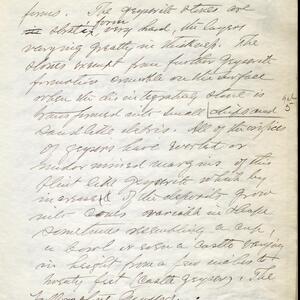 forms. The geyserite stones are
form
in very hard, the layers
varying greatly in thickness. The
stones exempt from further geyserite
formation crumble on the surface
when the disintegrating stone is
transformed into small chips and
sand like debris. All of the orifices
of geysers have overlaid or
margins of this
flint like geyserite which by
increase of the deposits grow
into cones variable in shape
sometimes resembling a cup,
a bowl or even a castle varying
in height from a few inches to
twenty feet (castle geyser). The